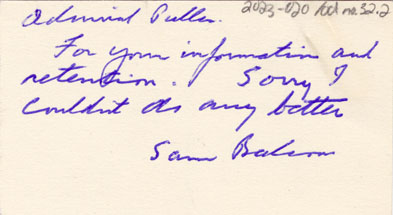 2023-020 no. 32.2
Admiral Pullen.
For your information and
retention. Sorry I
couldn't do any better
Sam